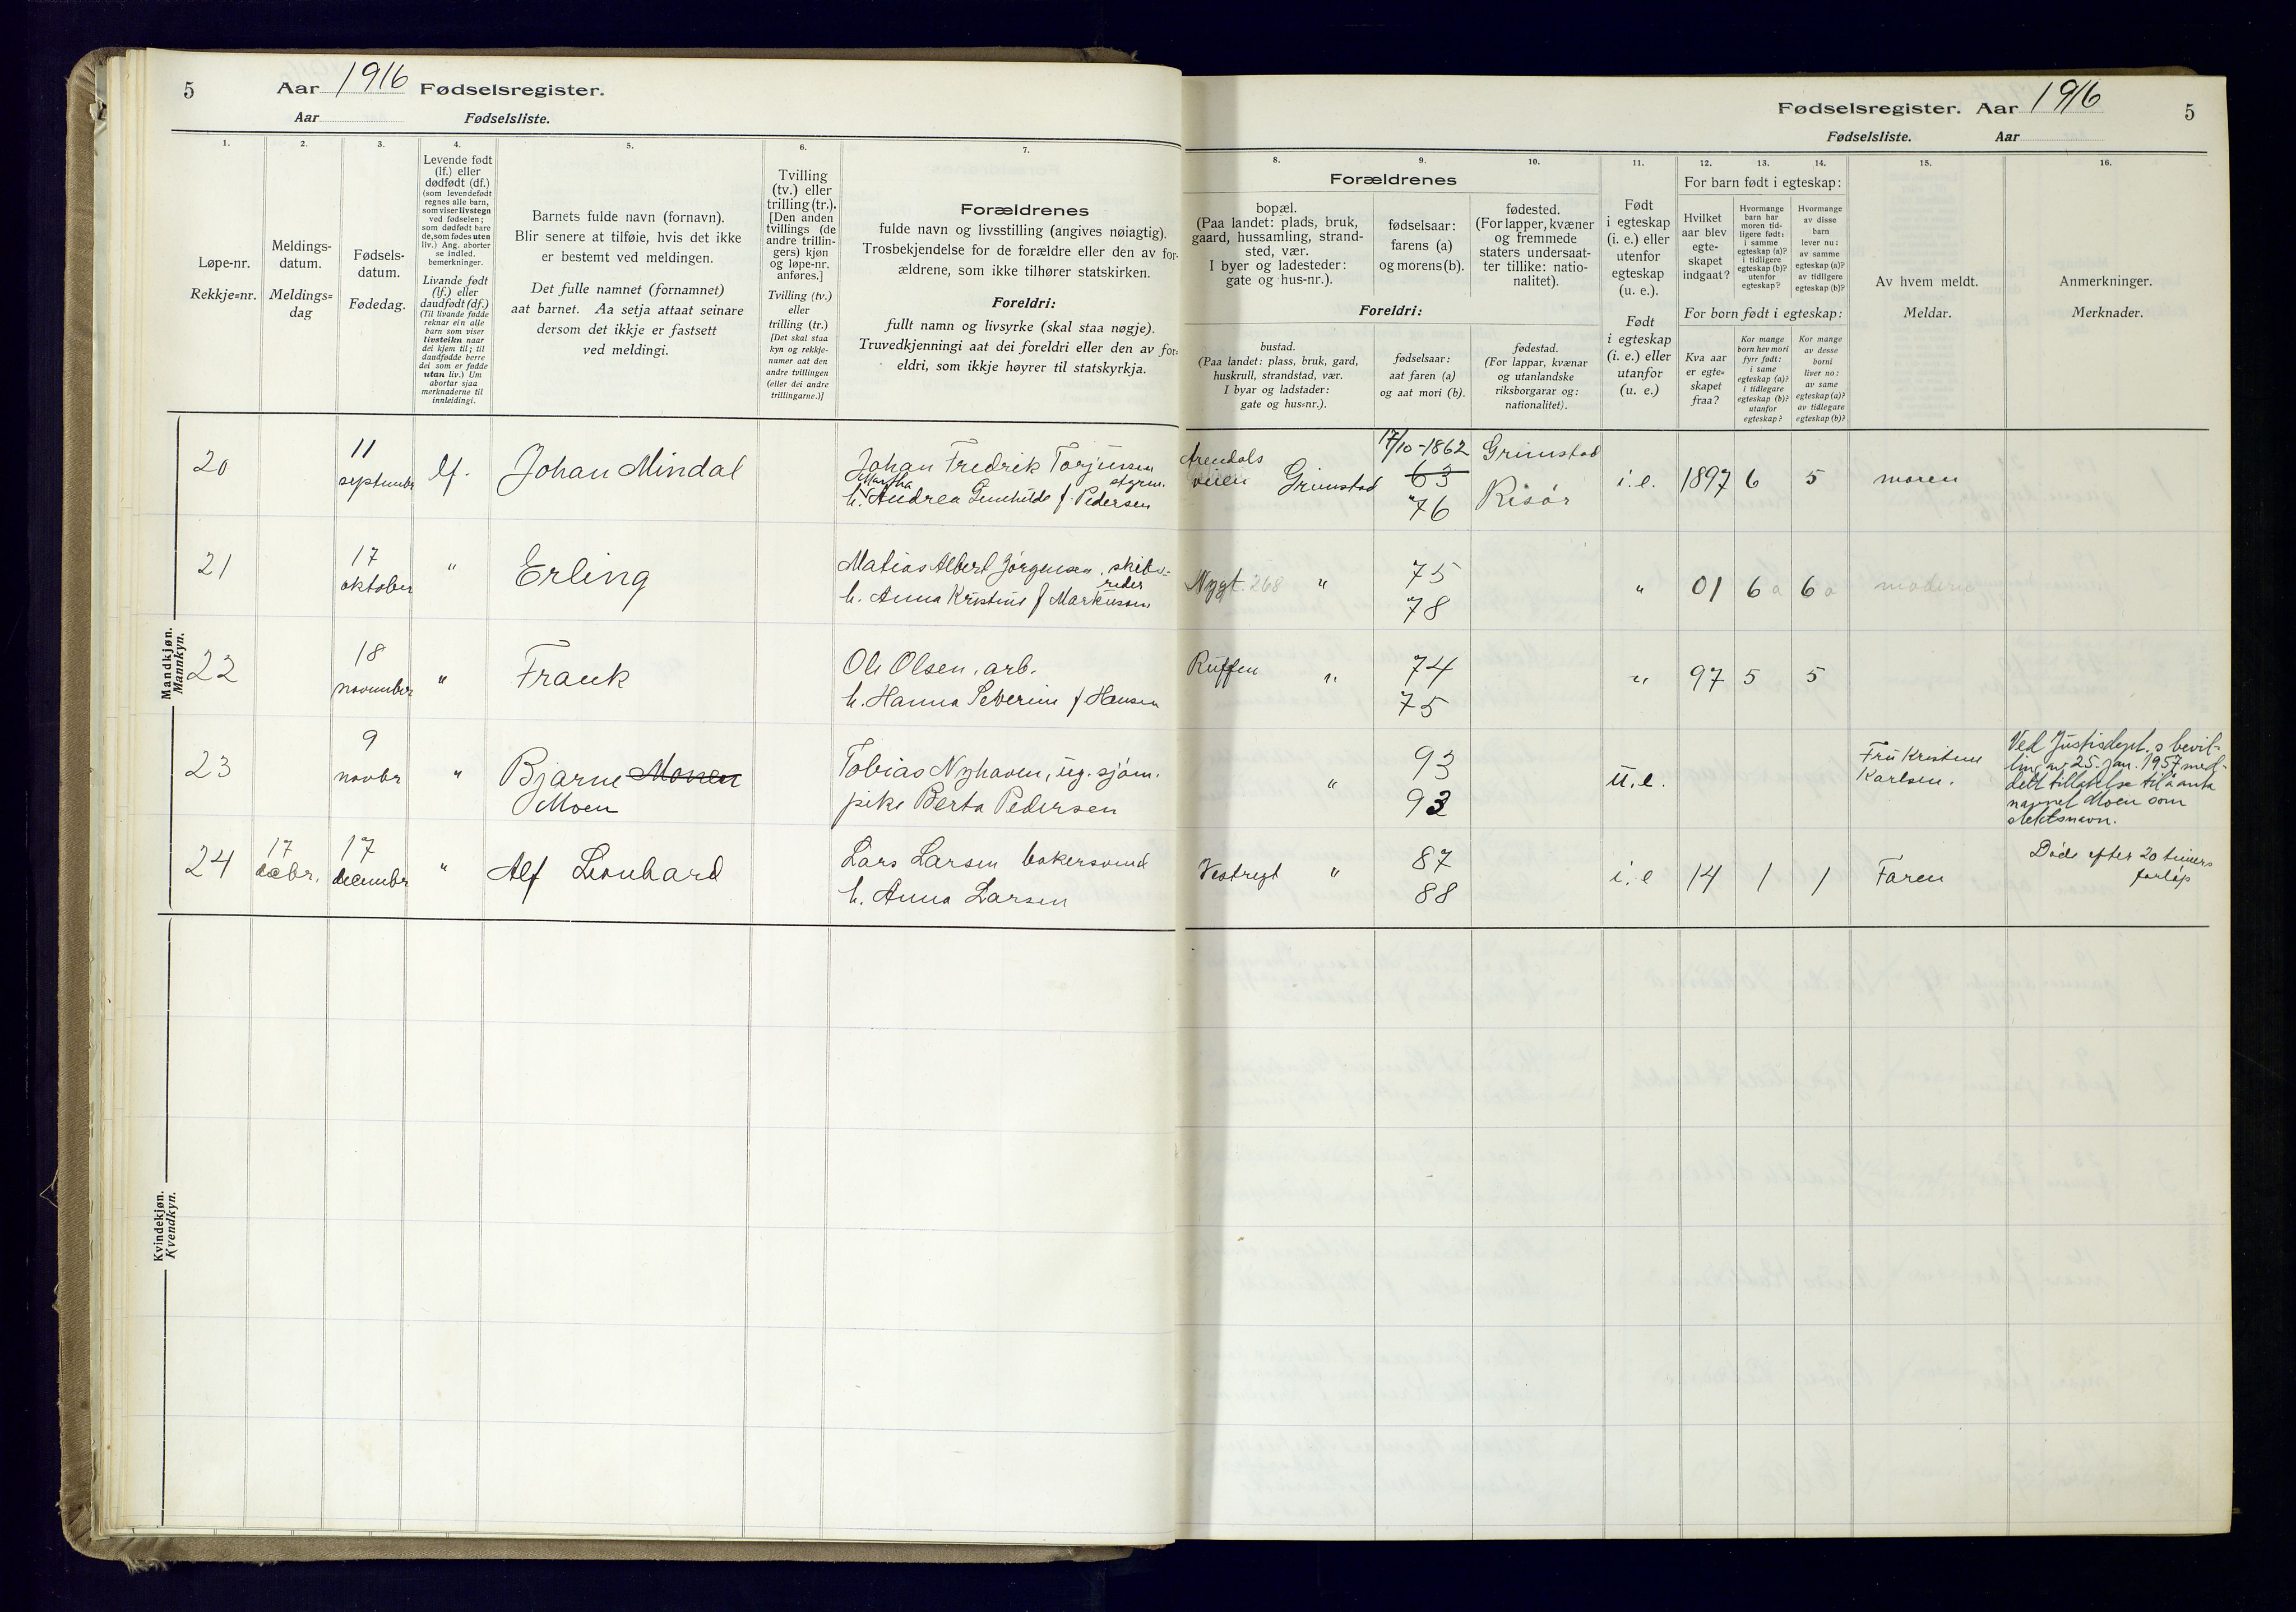 5
Aar 1916 Fødselsregister.
Aar Fødselsliste.
1.
2.
3.
4.
5.
6.
7.
Løpe-nr.
Rekkje=nr.
Meldings-
datum.
Meldings=
dag
Fødsels-
datum.
Fødedag.
Levende født
(lf.) eller
dødfødt (df.)
(som levendefødt
regnes alle barn,
som viser livstegn
ved fødselen;
som dødfødt bare
de, som fødes uten
liv.) Ang. aborter
se indled.
bemerkninger.
Livande født
(lf.) eller
daudfødt (df.)
(Til livande fødde
reknar ein alle
barn som viser
livsteikn naar
dei kjem til; til
daudfødde berre
dei som er fødde
utan liv.) Um
abortar sjaa
merknaderne til
innleidingi.
Barnets fulde navn (fornavn).
Blir senere at tilføie, hvis det ikke
er bestemt ved meldingen.
Det fulle namnet (fornamnet)
aat barnet. Aa setja attaat seinare
dersom det ikkje er fastsett
ved meldingi.
Tvilling
(tv.) eller
trilling (tr.).
[Den anden
tvillings (de
andre trillin-
gers) kjøn
og løpe-nr.
anføres.]
Tvilling (tv.)
eller
trilling (tr.)
[Det skal staa
kyn og rekkje-
numer aat den
andre tvillingen
(eller dei andre
trillingarne.)]
Forældrenes
fulde navn og livsstilling (angives nøiagtig).
Trosbekjendelse for de forældre eller den av for-
ældrene, som ikke tilhører statskirken.
Foreldri:
fullt namn og livsyrke (skal staa nøgje).
Truvedkjenningi aat dei foreldri eller den av for=
eldri, som ikkje høyrer til statskyrkja.
Mandkjøn.
Mannkyn.
20
11
septembr
lf.
Johan Mindal
Johan Fredrik Torjussen
styrm.
Martha
h. Andrea Gunhilde f. Pedersen
21
17
oktober
"
Erling
Matias Albert Jörgensen, skibs-
reder
h. Anna Kristine f Markuson
22
18
novembr
"
Frank
Ole Olsen, arb.
h. Hanna Severine f Hansen
23
9
novbr
"
Bjarne Monen
Moen
Tobias Nyhaven, ug. sjöm.
pike Berta Pedersen
24
17
decbr.
17
decembr
"
Alf Leonhard
Lars Larsen bakersvend
h. Anna Larsen
Kvindekjøn.
Kvendkyn.
Fødselsregister. Aar 1916
5
Fødselsliste. Aar
8.
9.
10.
11.
12.
13.
14.
15.
16.
Forældrenes
bopæl.
(Paa landet: plads, bruk,
gaard, hussamling, strand-
sted, vær.
I byer og ladesteder:
gate og hus-nr.).
fødselsaar:
farens (a)
og morens (b).
fødested.
(For lapper, kvæner
og fremmede
staters undersaat-
ter tillike: natio-
nalitet).
Foreldri:
bustad.
(Paa landet: plass, bruk, gard,
huskrull, strandstad, vær.
I byar og ladstader:
gate og hus=nr.).
fødselsaar:
aat faren (a)
og aat mori (b).
fødestad.
(For lappar, kvænar
og utanlandske
riksborgarar og:
nationalitet).
Født
i egteskap
(i. e.) eller
utenfor
egteskap
(u. e.).
Født
i egteskap
(i. e.) eller
utanfor
(u. e.)
For barn født i egteskap:
Hvilket
aar blev
egte-
skapet
indgaat?
Hvormange
barn har
moren tid-
ligere født:
i samme
egteskap (a)?
i tidligere
egteskap (b)?
utenfor
egteskap?
Hvormange
av disse
barn
lever nu:
av samme
egteskap (a)?
av tidligere
egteskap (b)?
For born født i egteskap:
Kva aar
er egte=
skapet
fraa?
Kor mange
born hev mori
fyrr født:
i same
egteskap (a)?
i tidlegare
egteskap (b)?
utanfor
egteskap?
Kor mange
av desse
borni
liver no:
av same
egteskap (a)?
av tidlegare
egteskap (b)?
Av hvem meldt.
Meldar.
Anmerkninger.
Merknader.
Arendals
veien Grimstad
17/10-1862
63
76
Grimstad
Risör
i. e.
1897
6
5
moren
Nygt. 268 "
75
78
"
01
6 a
6 a
moderen
Ruffen "
74
75
"
97
5
5
"
93
93
u. e.
Fru Kristine
Karlsen.
Ved Justisdept.s bevil-
ling av 25. jan. 1957 med-
delt tillatelse til å anta
navnet Moen som
slektsnavn.
Vestregt "
87
88
i. e
14
1
1
Faren
Döde efter 20 timers
forlöp